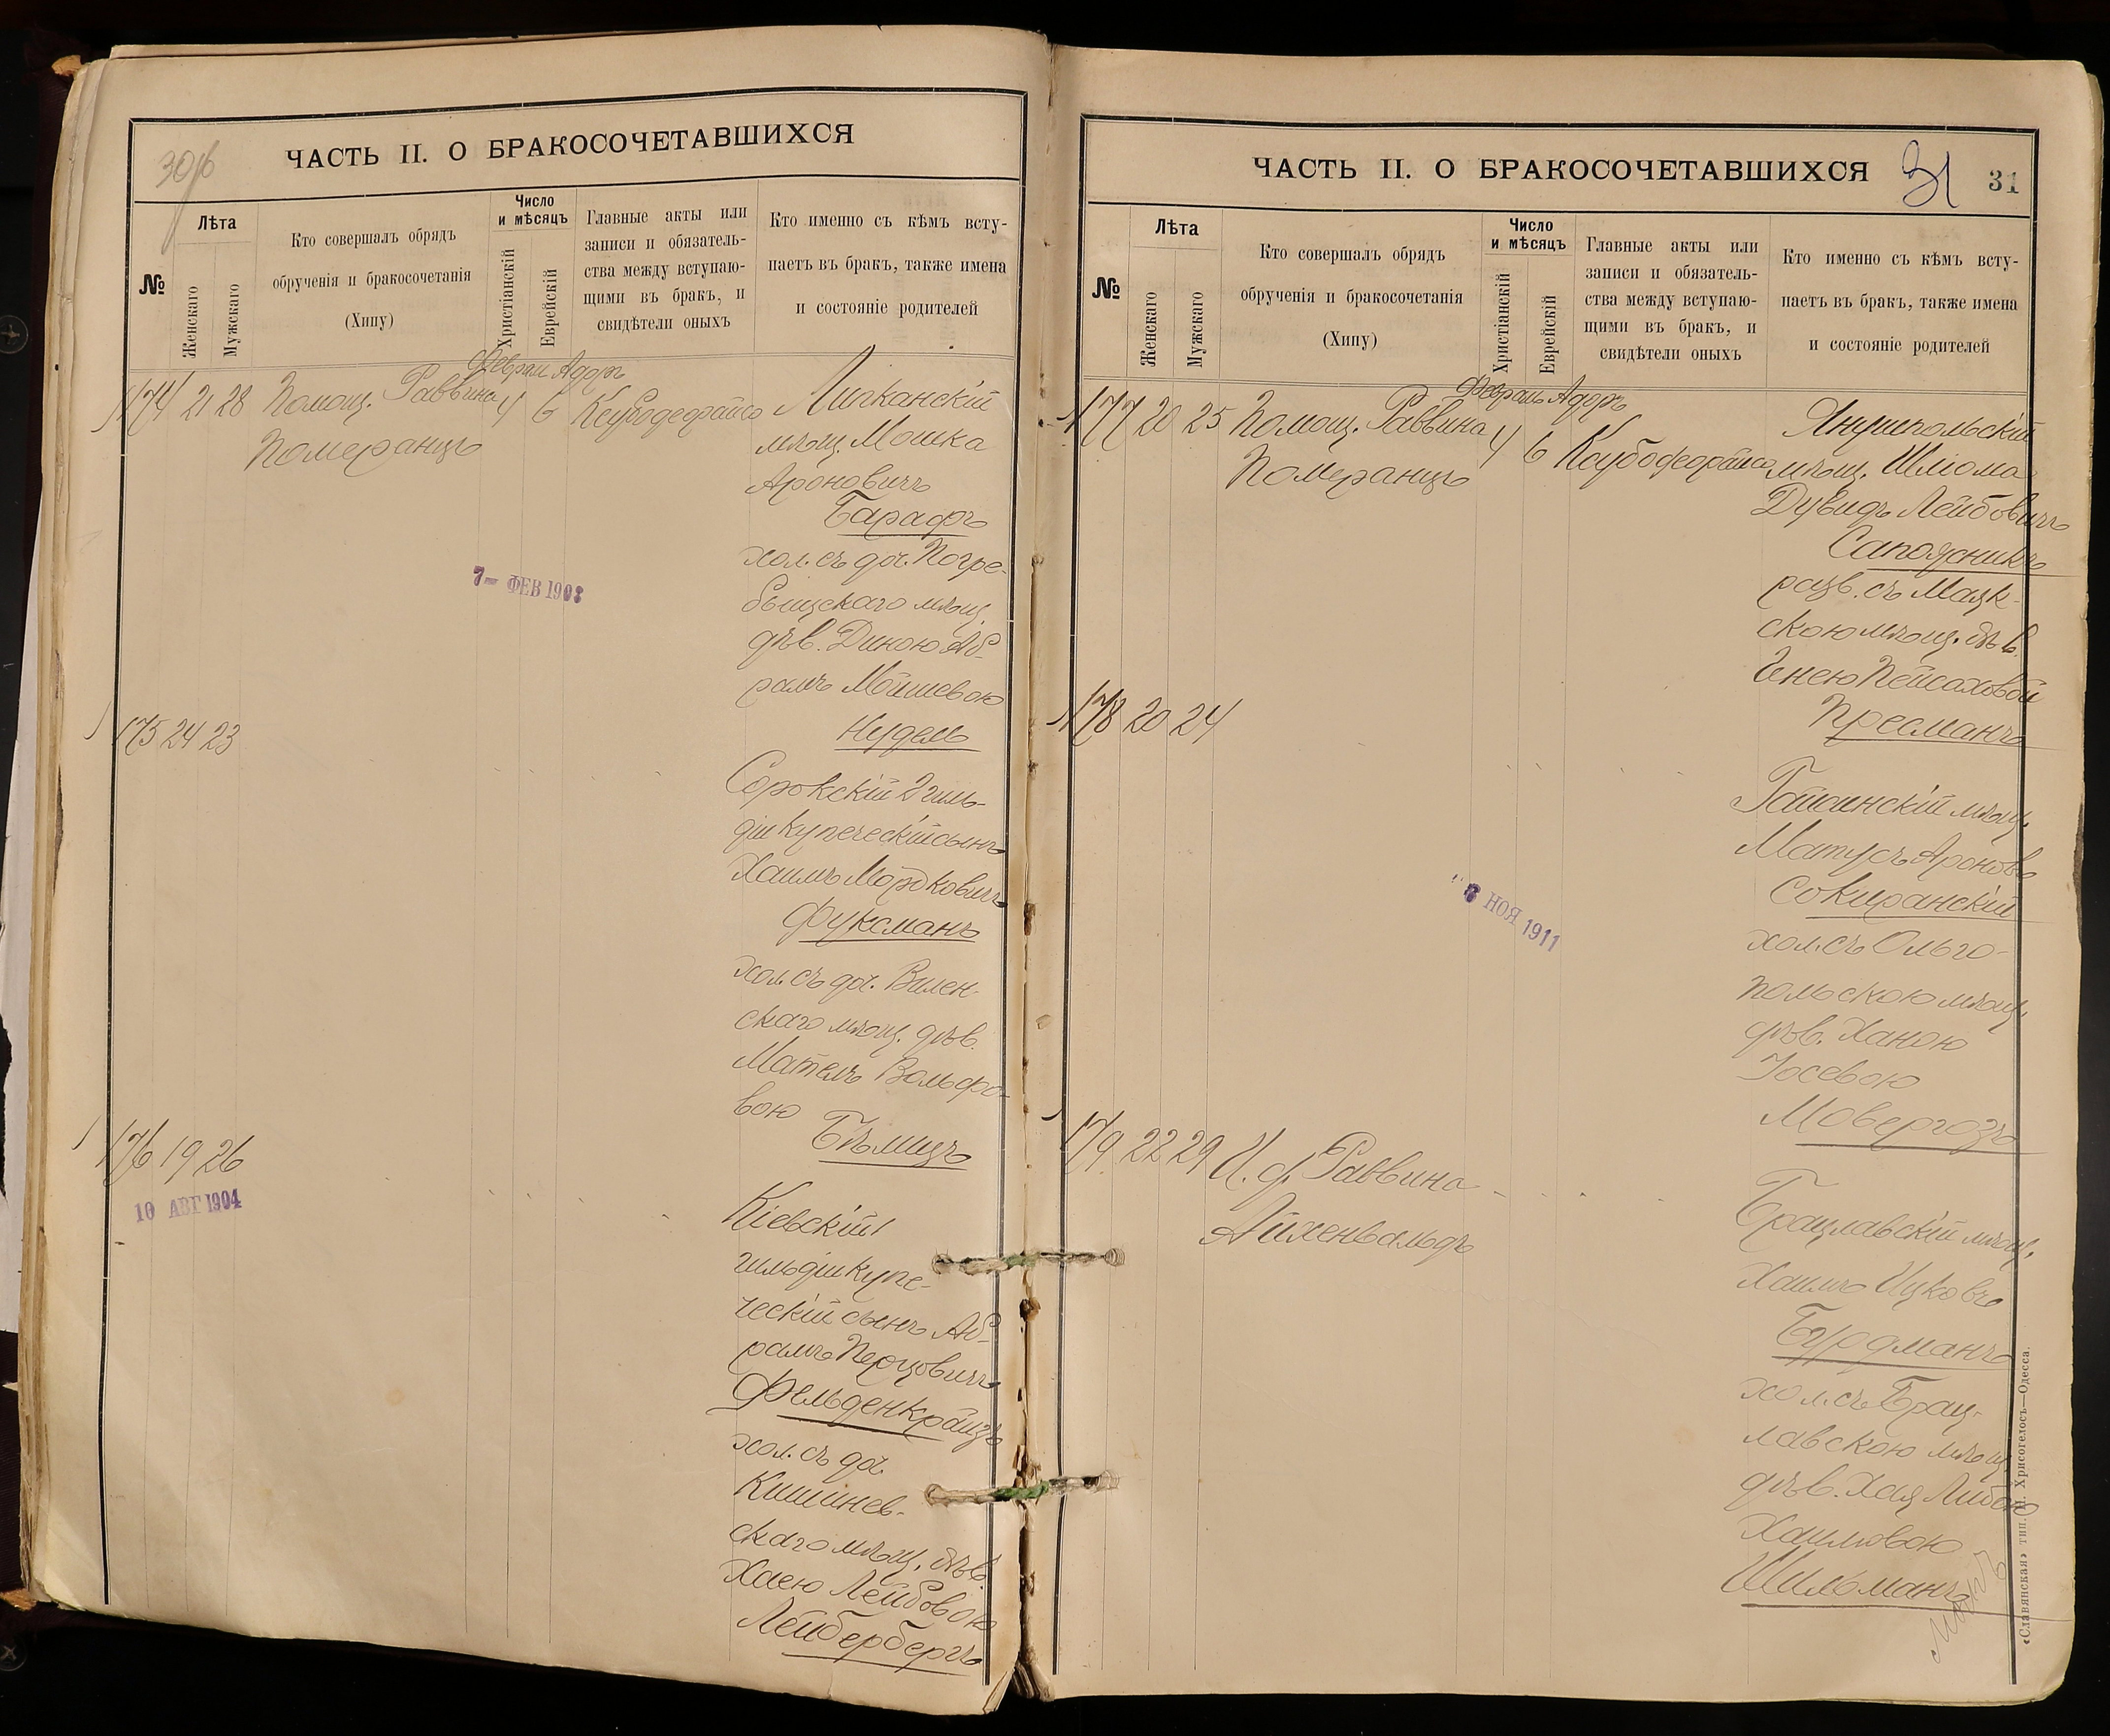 30 об
ЧАСТЬ II. О БРАКОСОЧЕТАВШИХСЯ
№
Лѣта
Женскаго
Мужскаго
Кто совершалъ обрядъ
обрученія и бракосочетанія
(Хипу)
Число
и мѣсяцъ
Христіанскій
Еврейскій
Главные акты или
записи и обязатель-
ства между вступаю-
щими въ бракъ, и
свидѣтели оныхъ
Кто именно съ кѣмъ всту-
паетъ въ бракъ, также имена
и состояніе родителей
Февраль Адаръ
174 21 28 Помощ. Раввина 4 6
Померанцъ
мѣщ. Мошка
Ароновичъ
Барафъ
хол. съ доч. Погре-
быщскаго мѣщ.
дѣв. Диною Аб-
рамъ Мойшевою
Нудель
7 ФЕВ 1908
175 24 23
Сорокскій 2 гиль-
діи купеческій сынъ
Хаимъ Мордковичъ
Фуксманъ
хол. съ доч. Вилен-
скаго мѣщ. дѣв.
Матель Вольфо-
вою
Бѣлицъ
176 19 26
10 АВГ 1904
Кіевскій 1
гильдіи купе-
ческій сынъ Аб-
рамъ Перцовичъ
Фельденкрайзъ
хол. съ доч.
Кишинев-
скаго мѣщ. дѣв.
Хаею Лейбовою
Лейберберъ
ЧАСТЬ II. О БРАКОСОЧЕТАВШИХСЯ
31
31
№
Лѣта
Женскаго
Мужскаго
Кто совершалъ обрядъ
обрученія и бракосочетанія
(Хипу)
Число
и мѣсяцъ
Христіанскій
Еврейскій
Главные акты или
записи и обязатель-
ства между вступаю-
щими въ бракъ, и
свидѣтели оныхъ
Кто именно съ кѣмъ всту-
паетъ въ бракъ, также имена
и состояніе родителей
Февраль Адаръ
177 20 25 Помощ. Раввина 4 6
Померанцъ
Янушпольскій
мѣщ. Шліома
Дувидъ Лейбовичъ
Сапожникъ
разв. съ Маяк-
скою мѣщ. дѣв.
Генею Пейсаховой
Пресманъ
178 20 24
мѣщ.
Матусъ Ароновъ
Сокиранскій
хол. съ Ольго-
польскою мѣщ.
дѣв. Ханою
Іосевою
Мовергозъ
6 НОЯ 1911
179. 22 29 И. д. Раввина
Айхенвальдъ
Брацлавскій мѣщ.
Хаимъ Ицковъ
Бурдманъ
хол. съ Брац-
лавскою мѣщ.
дѣв. Хая Либою
Хаимовою
Шильманъ
«Славянская» тип. Н. Хрисогелосъ—Одесса.